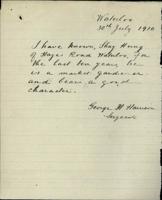 Waterloo
30th July 1910
I have known, Shay Hing
of Hope Road Waterloo, for
the last ten years he
is a market gardener
and bears a good
character.
George H Harrison
Sergeant